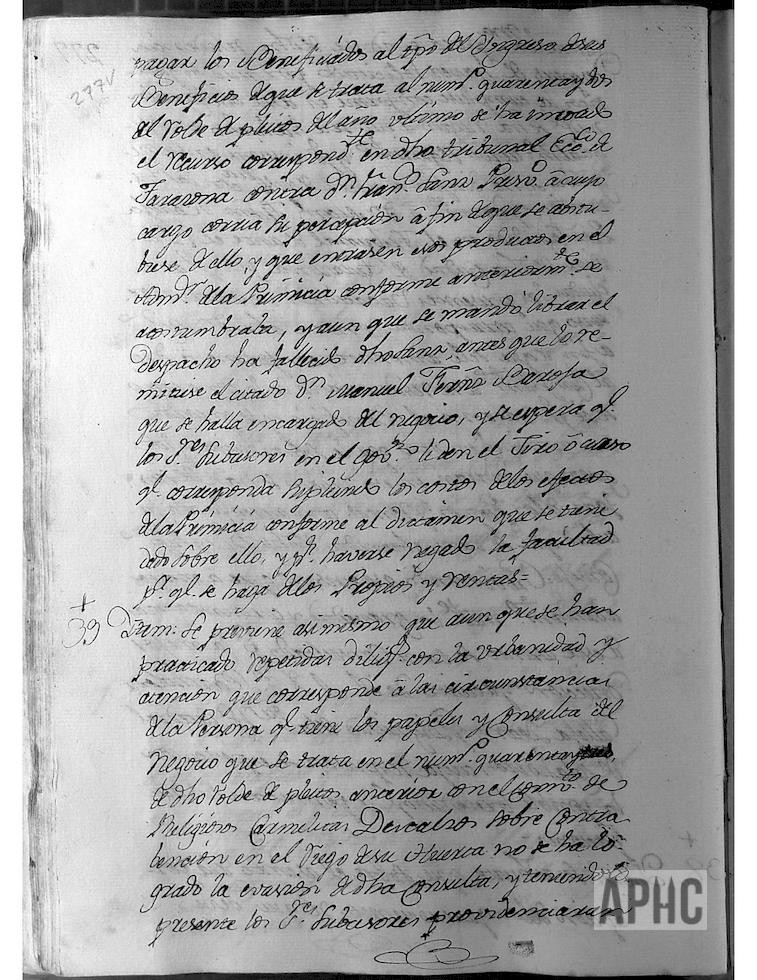 277v
pagar los Beneficiados al tpō del Yngreso desus
Beneficios de que se trata al num.º quarenta y dos
del Volde de pleitos del año vltimo se ha iniciado
el recurso correspond.te en dho tribunal Ecc.co de
Tarazona contra Dn. Fran.co Sanz Presv.o â cuyo
cargo corria su percepcion â fin de que se abstu-
biese de ello, y que entrasen esos productos en el
Adm.r dela Primicia conforme anteriorm.te se
acostumbraba, y aun que se mandò librar el
Despacho ha fallecido dho Sanz, antes que lo re-
mitiese el citado Dn Manuel
que se halla encargado del negocio, y se espera q.e
los S.res Subcesores en el Gov.no liden el Giro ô curso
q.e corresponda supliendo los costos delos efectos
dela Primicia conforme al dictamen que se tiene
dado sobre ello, y p.r haverse negado la facultad
p.a q.e se haga delos Propios y rentas=
+
39 Ytem: Se previene asimismo que aun que se han
practicado repetidas dilig.s con la vrbanidad y
atencion que corresponde â las circunstancias
dela Persona q.e tiene los papeles y Consulta del
Negocio que se trata en el num.º quarenta y tres,
de dho Volde de pleitos anterior con el Conv.to de
Religiosos Carmelitas Descalzos sobre Contra
bencion en el Riego de su Huerta no se ha lo-
grado la evasion de dha Consulta, y teniendolo
presente los S.res Subcesores providenciaran
APHC